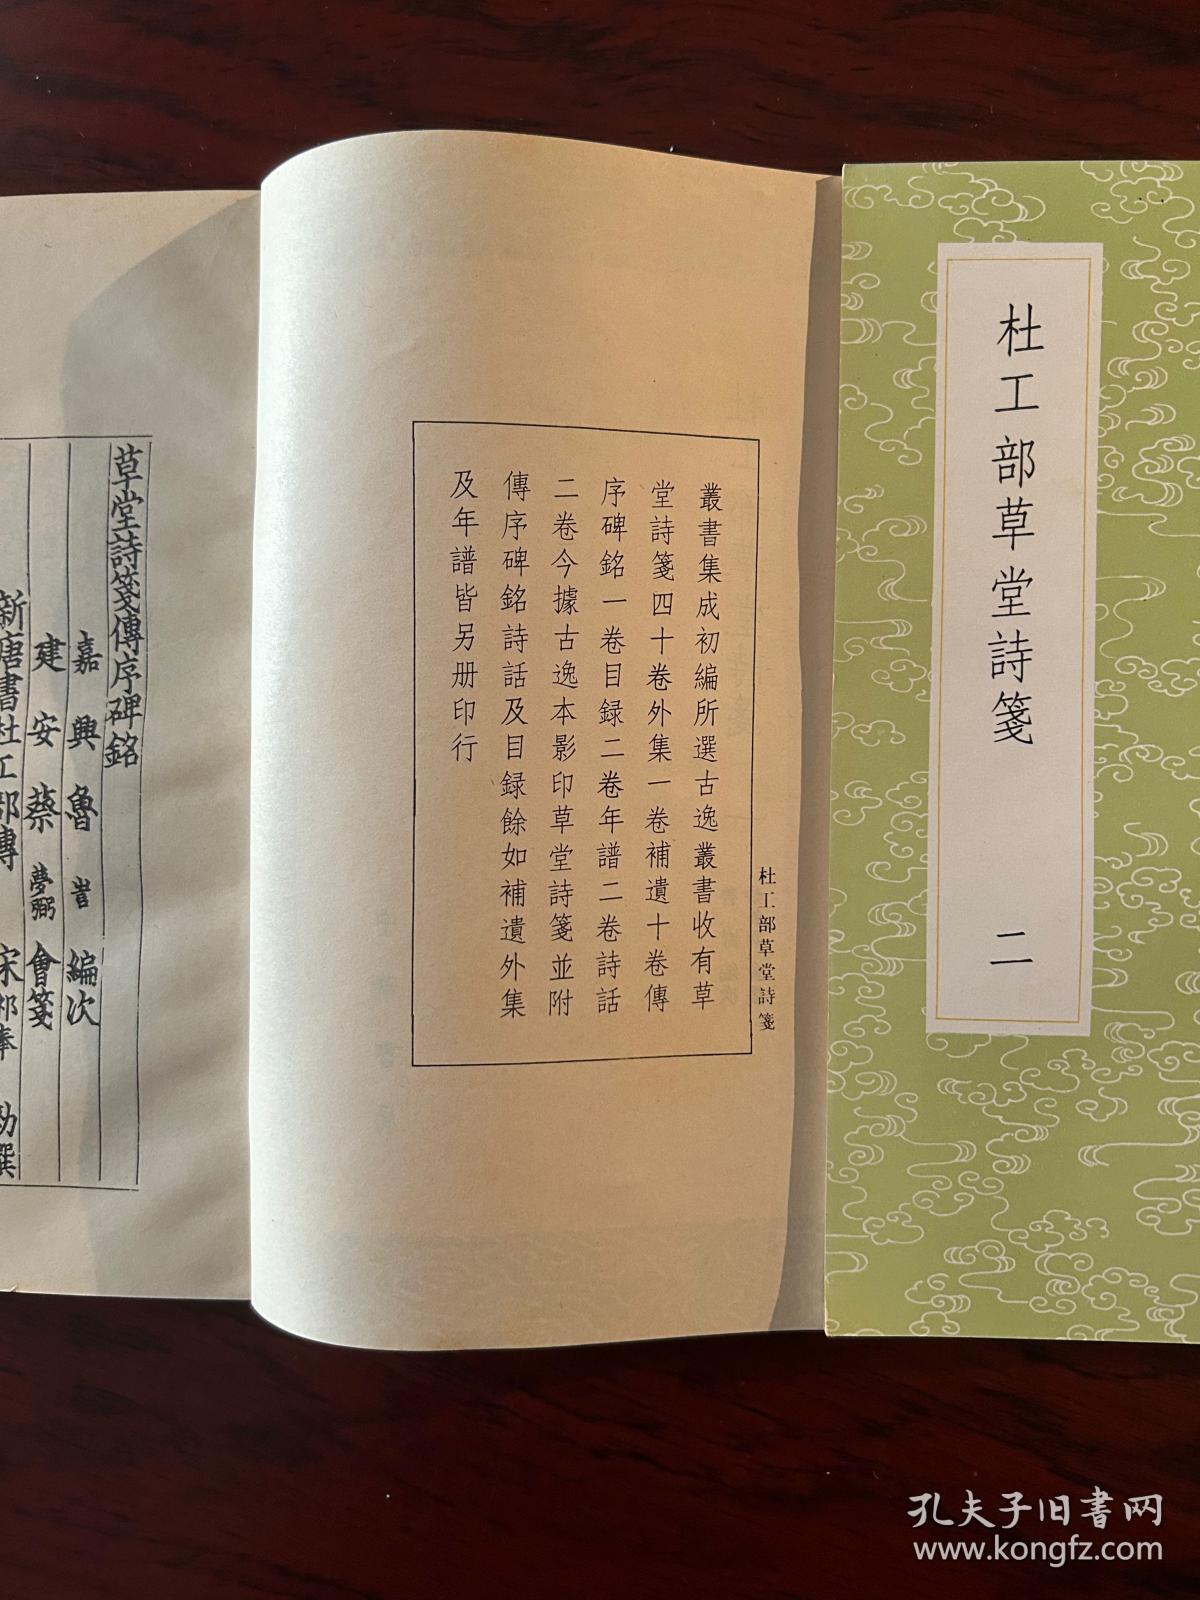 杜工部草堂詩箋 二
杜工部草堂詩箋
叢書集成初編所選古逸叢書收有草
堂詩箋四十卷外集一卷補遺十卷傳
序碑銘一卷目録二卷年譜二卷詩話
二卷今據古逸本影印草堂詩箋並附
傳序碑銘詩話及目録餘如補遺外集
及年譜皆另册印行
草堂詩箋傳序碑銘
嘉興魯訔編次
建安蔡夢弼會箋
新唐書杜工部傳 宋祁奉 勑撰
孔夫子旧书网
www.kongfz.com